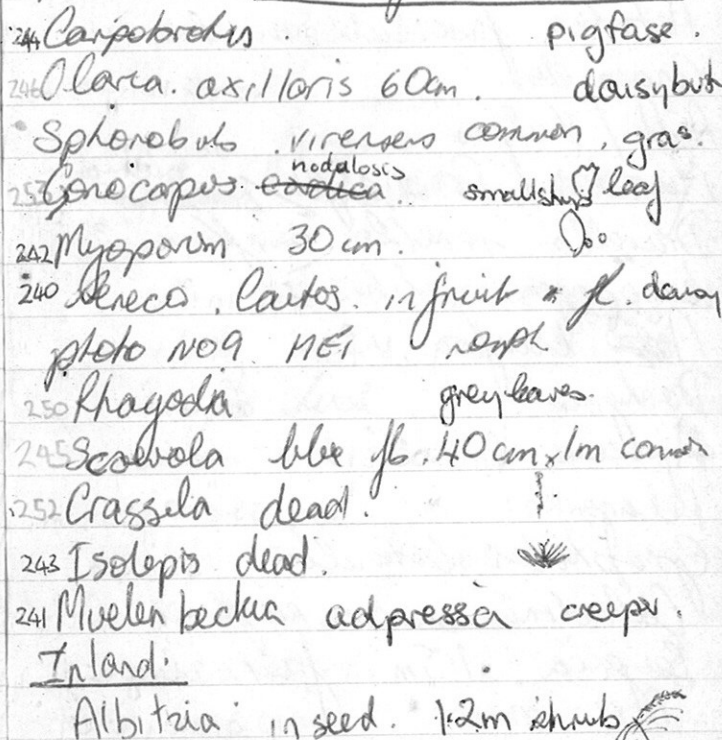 244 Carpobrotus pigfase.
246 Olaria. axillaris 60cm. daisybush
Sphorobuls. virensens common, gras.
nodulosis
253 Gonocarpus. smallshrub leaf
242 Myoporum 30cm.
240 Seneco. lautos. in fruit * fl. daisy
photo NO9. MET
250 Rhagodia grey leaves.
245 Scaevola blue fls. 40cm x 1m common
252 Crassula dead.
243 Isolepis dead.
241 Muelenbeckia adpressa creeper.
Inland.
Albitzia in seed. 1.2m shrub